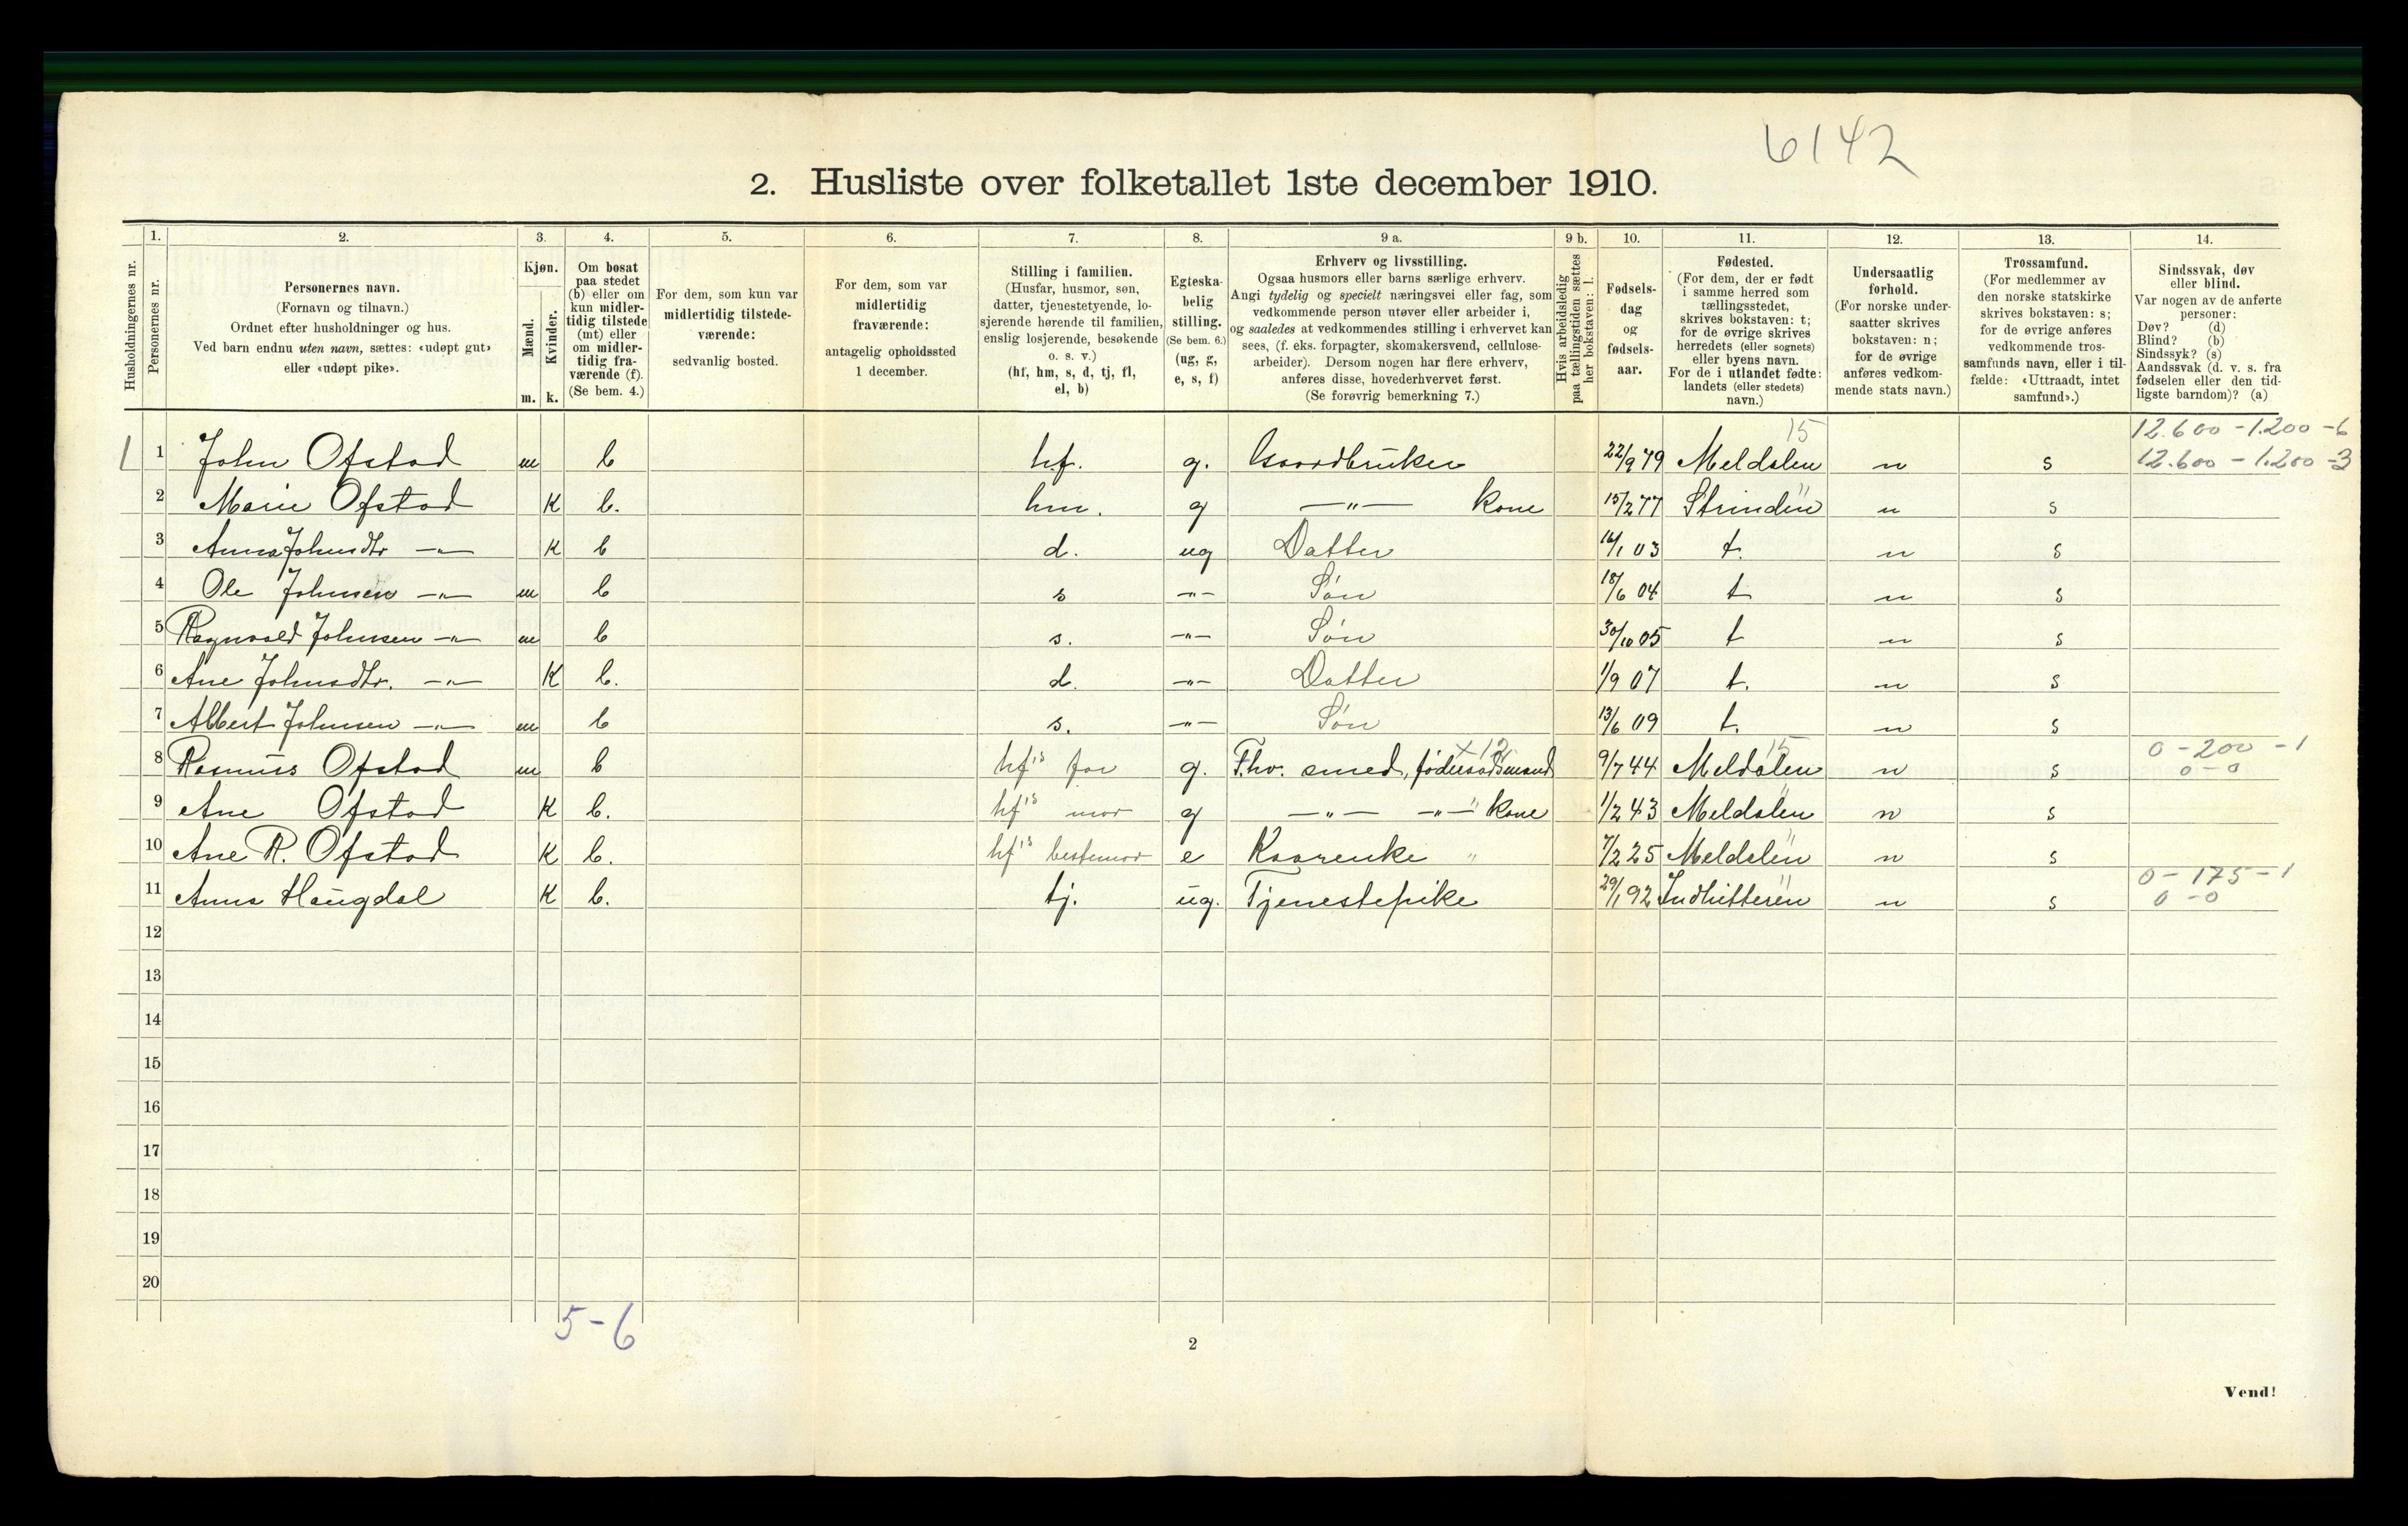 6142
2. Husliste over folketallet 1ste december 1910.
1. 2. 3. 4. 5. 6. 7. 8. 9 a. 9 b. 10. 11. 12. 13. 14.
Husholdningernes nr.
Personernes nr.
Personernes navn.
(Fornavn og tilnavn.)
Ordnet efter husholdninger og hus.
Ved barn endnu uten navn, sættes: «udøpt gut»
eller «udøpt pike».
Kjøn.
Mænd.
Kvinder.
m. k.
Om bosat
paa stedet
(b) eller om
kun midler-
tidig tilstede
(mt) eller
om midler-
tidig fra-
værende (f).
(Se bem. 4.)
For dem, som kun var
midlertidig tilstede-
værende:
sedvanlig bosted.
For dem, som var
midlertidig
fraværende:
antagelig opholdssted
1 december.
Stilling i familien.
(Husfar, husmor, søn,
datter, tjenestetyende, lo-
sjerende hørende til familien,
enslig losjerende, besøkende
o. s. v.)
(hf, hm, s, d, tj, fl,
el, b)
Egteska-
belig
stilling.
(Se bem. 6.)
(ug, g,
e, s, f)
Erhverv og livsstilling.
Ogsaa husmors eller barns særlige erhverv.
Angi tydelig og specielt næringsvei eller fag, som
vedkommende person utøver eller arbeider i,
og saaledes at vedkommendes stilling i erhvervet kan
sees, (f. eks. forpagter, skomakersvend, cellulose-
arbeider). Dersom nogen har flere erhverv,
anføres disse, hovederhvervet først.
(Se forøvrig bemerkning 7.)
Hvis arbeidsledig
paa tællingstiden sættes
her bokstaven: l.
Fødsels-
dag
og
fødsels-
aar.
Fødested.
(For dem, der er født
i samme herred som
tællingsstedet,
skrives bokstaven: t;
for de øvrige skrives
herredets (eller sognets)
eller byens navn.
For de i utlandet fødte:
landets (eller stedets)
navn.)
Undersaatlig
forhold.
(For norske under-
saatter skrives
bokstaven: n;
for de øvrige
anføres vedkom-
mende stats navn.)
Trossamfund.
(For medlemmer av
den norske statskirke
skrives bokstaven: s;
for de øvrige anføres
vedkommende tros-
samfunds navn, eller i til-
fælde: «Uttraadt, intet
samfund».)
Sindssvak, døv
eller blind.
Var nogen av de anførte
personer:
Døv? (d)
Blind? (b)
Sindssyk? (s)
Aandssvak (d. v. s. fra
fødselen eller den tid-
ligste barndom)? (a)
15 12.600 - 1.200 - 6
1 1 John Ofstad m b hf. g. Gaardbruker 22/9 79 Meldalen n s 12.600 - 1.200 - 3
2 Marie Ofstad K b. hm. g —"— kone 15/2 77 Strinden n s
3 Anna Johnsdtr —"— K b d. ug Datter 16/1 03 t. n s
4 Ole Johnsen —"— m b s —"— Søn 18/6 04 t n s
5 Ragnvald Johnsen —"— m b s. —"— Søn 30/10 05 t n s
6 Ane Johnsdtr. —"— K b. d. —"— Datter 1/9 07 t. n s
7 Albert Johnsen —"— m b s. —"— Søn 13/6 09 t. n s
+12 15 0 - 200 - 1
8 Rasmus Ofstad m b hf's far g. Fhv. smed, føderaadsmand 9/7 44 Meldalen n s 0 - 0
9 Ane Ofstad K b. hf's mor g —"— —"— kone 1/2 43 Meldalen n s
10 Ane R. Ofstad K b. hf's bestemor e Kaarenke " 7/2 25 Meldalen n s
0 - 175 - 1
11 Anna Haugdal K b. tj. ug. Tjenestepike 29/1 92 Indhitteren n s 0 - 0
12
13
14
15
16
17
18
19
20
5 - 6
2
Vend!